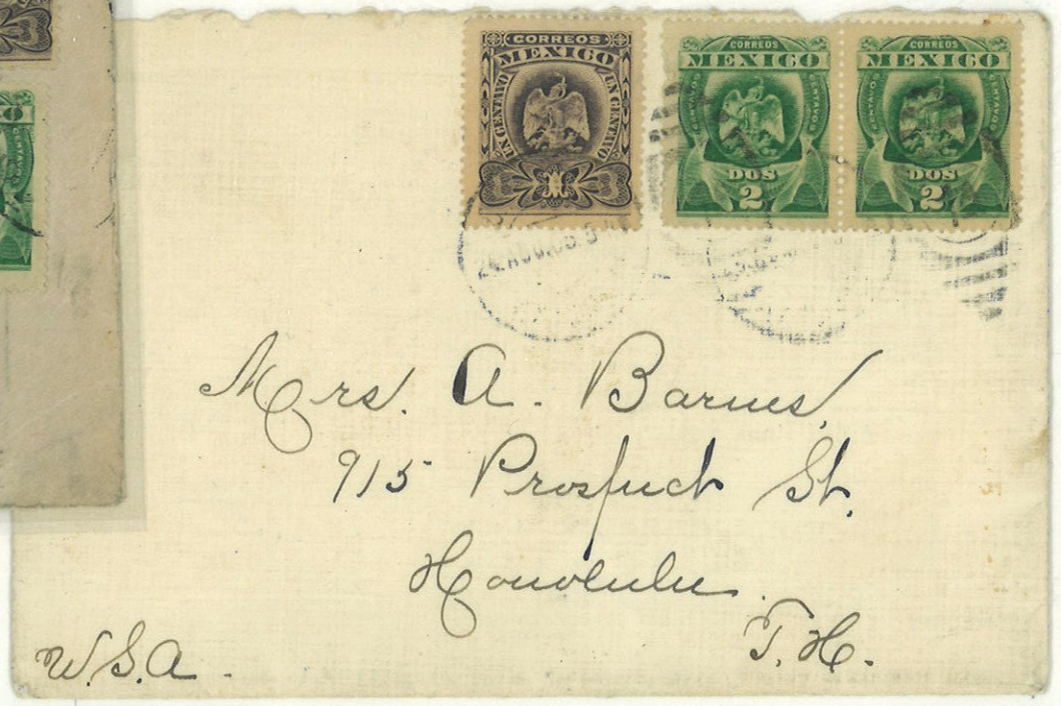 CORREOS
MEXICO
UN CENTAVO UN CENTAVO
CORREOS
MEXICO
CENTAVOS CENTAVOS
DOS
2
CORREOS
MEXICO
CENTAVOS CENTAVOS
DOS
2
Mrs. A. Barnes,
915 Prospect St.
Honolulu.
T. H.
U.S.A.